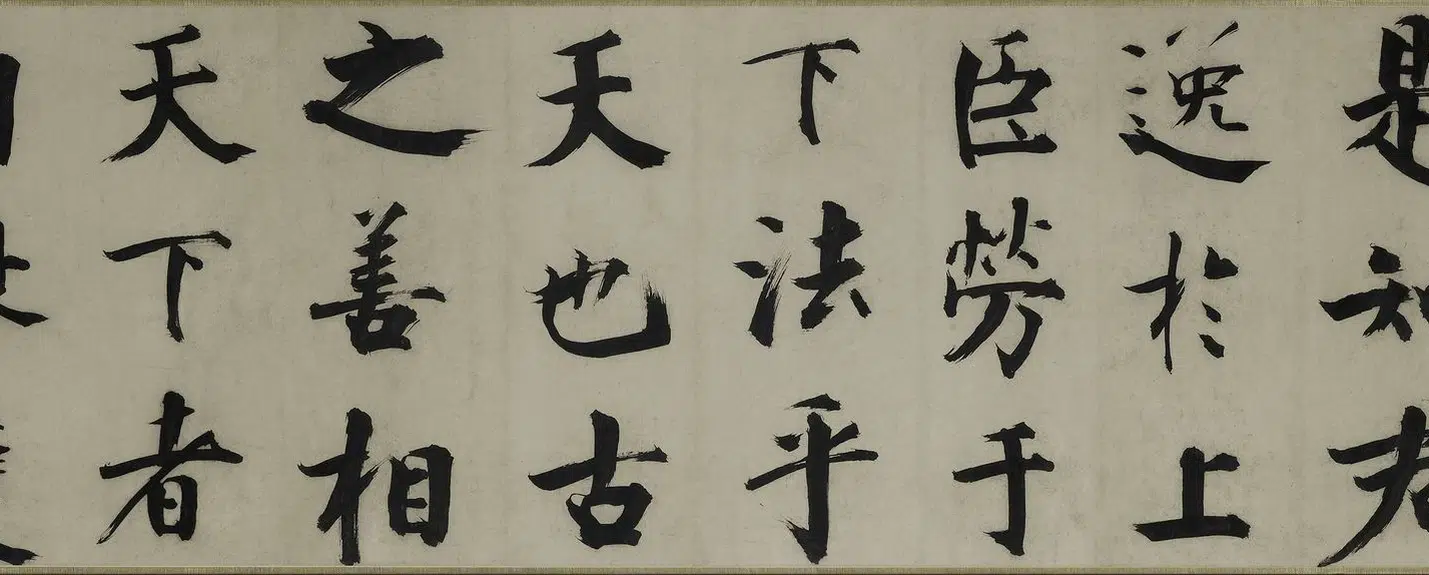 是知君
逸於上
臣勞于
下法乎
天也古
之善相
天下者